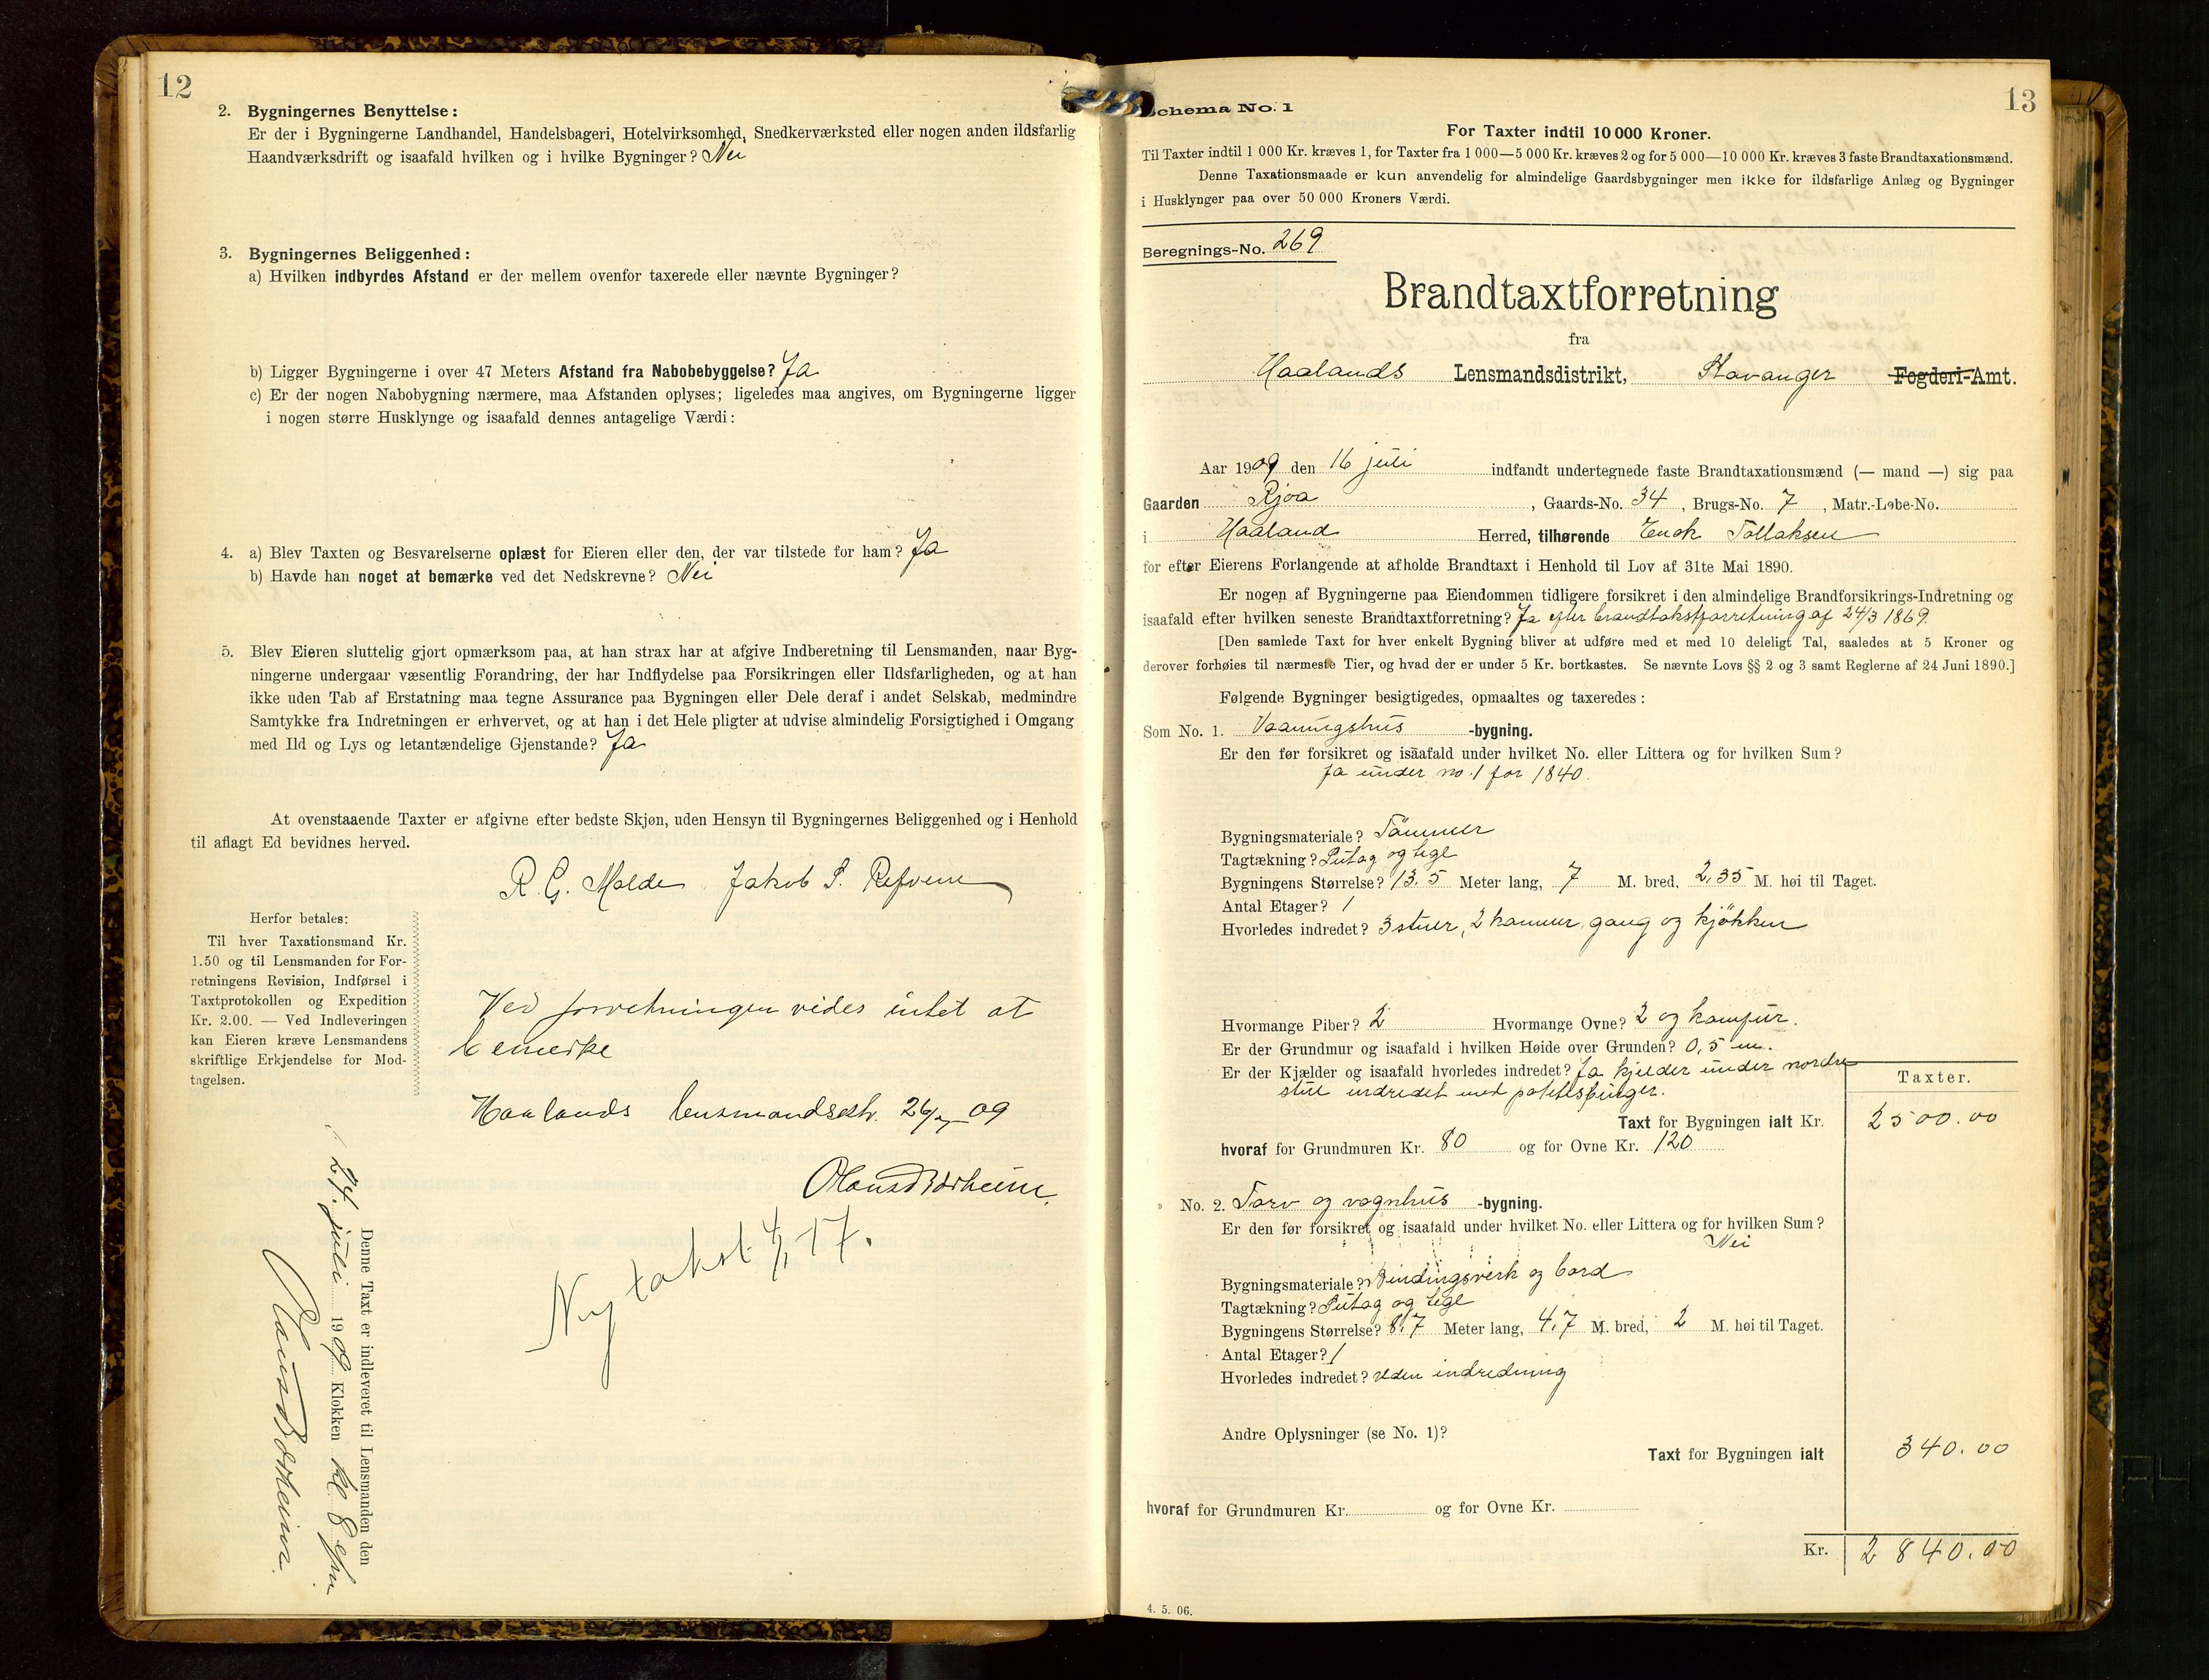 12
2. Bygningernes Benyttelse:
Er der i Bygningerne Landhandel, Handelsbageri, Hotelvirksomhed, Snedkerværksted eller nogen anden ildsfarlig
Haandværksdrift og isaafald hvilken og i hvilke Bygninger? Nei
3. Bygningernes Beliggenhed:
a) Hvilken indbyrdes Afstand er der mellem ovenfor taxerede eller nævnte Bygninger?
b) Ligger Bygningerne i over 47 Meters Afstand fra Nabobebyggelse? Ja
c) Er der nogen Nabobygning nærmere, maa Afstanden oplyses; ligeledes maa angives, om Bygningerne ligger
i nogen større Husklynge og isaafald dennes antagelige Værdi:
4. a) Blev Taxten og Besvarelserne oplæst for Eieren eller den, der var tilstede for ham? Ja
b) Havde han noget at bemærke ved det Nedskrevne? Nei
5. Blev Eieren sluttelig gjort opmærksom paa, at han strax har at afgive Indberetning til Lensmanden, naar Byg-
ningerne undergaar væsentlig Forandring, der har Indflydelse paa Forsikringen eller Ildsfarligheden, og at han
ikke uden Tab af Erstatning maa tegne Assurance paa Bygningen eller Dele deraf i andet Selskab, medmindre
Samtykke fra Indretningen er erhvervet, og at han i det Hele pligter at udvise almindelig Forsigtighed i Omgang
med Ild og Lys og letantændelige Gjenstande? Ja
At ovenstaaende Taxter er afgivne efter bedste Skjøn, uden Hensyn til Bygningernes Beliggenhed og i Henhold
til aflagt Ed bevidnes herved.
R. G. Malde Jakob S. Refvem
Herfor betales:
Til hver Taxationsmand Kr.
1.50 og til Lensmanden for For-
retningens Revision, Indførsel i
Taxtprotokollen og Expedition
Kr. 2.00. — Ved Indleveringen
kan Eieren kræve Lensmandens
skriftlige Erkjendelse for Mod-
tagelsen.
Ved forretningen vides intet at
bemerke
Haalands lensmandsestr. 26/7-09
Olaus Børheim.
Ny takst 4/1 17.
Denne Taxt er indleveret til Lensmanden den
24. juli 1909 Klokken kl. 8 efm.
Olaus Børheim.
Schema No. 1
13
For Taxter indtil 10 000 Kroner.
Til Taxter indtil 1 000 Kr. kræves 1, for Taxter fra 1 000—5 000 Kr. kræves 2 og for 5 000—10 000 Kr. kræves 3 faste Brandtaxationsmænd.
Denne Taxationsmaade er kun anvendelig for almindelige Gaardsbygninger men ikke for ildsfarlige Anlæg og Bygninger
i Husklynger paa over 50 000 Kroners Værdi.
Beregnings-No. 269
Brandtaxtforretning
fra
Haalands Lensmandsdistrikt, Stavanger Fogderi-Amt.
Aar 1909 den 16 juli indfandt undertegnede faste Brandtaxationsmænd (— mand —) sig paa
Gaarden Rjoa, Gaards-No. 34, Brugs-No. 7, Matr.-Løbe-No.
i Haaland Herred, tilhørende Enok Tollaksen
for efter Eierens Forlangende at afholde Brandtaxt i Henhold til Lov af 31te Mai 1890.
Er nogen af Bygningerne paa Eiendommen tidligere forsikret i den almindelige Brandforsikrings-Indretning og
isaafald efter hvilken seneste Brandtaxtforretning? Ja efter brandtakstforretning af 24/3 1869.
[Den samlede Taxt for hver enkelt Bygning bliver at udføre med et med 10 deleligt Tal, saaledes at 5 Kroner og
derover forhøies til nærmeste Tier, og hvad der er under 5 Kr. bortkastes. Se nævnte Lovs §§ 2 og 3 samt Reglerne af 24 Juni 1890.]
Følgende Bygninger besigtigedes, opmaaltes og taxeredes:
Som No. 1. Vaaningshus -bygning.
Er den før forsikret og isaafald under hvilket No. eller Littera og for hvilken Sum?
Ja under no. 1 for 1840.
Bygningsmateriale? Tömmer
Tagtækning? Sutag og tegl
Bygningens Størrelse? 13,5 Meter lang, 7 M. bred, 2,35 M. høi til Taget.
Antal Etager? 1
Hvorledes indredet? 3 stuer, 2 kammer, gang og kjökken
Hvormange Piber? 2 Hvormange Ovne? 2 og komfur.
Er der Grundmur og isaafald i hvilken Høide over Grunden? 0,5 m.
Er der Kjælder og isaafald hvorledes indredet? Ja kjelder under nordre
stue indredet med potetesbinger.
Taxter.
Taxt for Bygningen ialt Kr. 2500.00
hvoraf for Grundmuren Kr. 80 og for Ovne Kr. 120
No. 2. Torv og vognhus -bygning.
Er den før forsikret og isaafald under hvilket No. eller Littera og for hvilken Sum?
Nei
Bygningsmateriale? Bindingsverk og bord
Tagtækning? Sutag og tegl
Bygningens Størrelse? 8,7 Meter lang, 4,7 M. bred, 2 M. høi til Taget.
Antal Etager? 1
Hvorledes indredet? Uden indredning
Andre Oplysninger (se No. 1)?
Taxt for Bygningen ialt 340.00
hvoraf for Grundmuren Kr. og for Ovne Kr.
Kr. 2840.00
4. 5. 06.